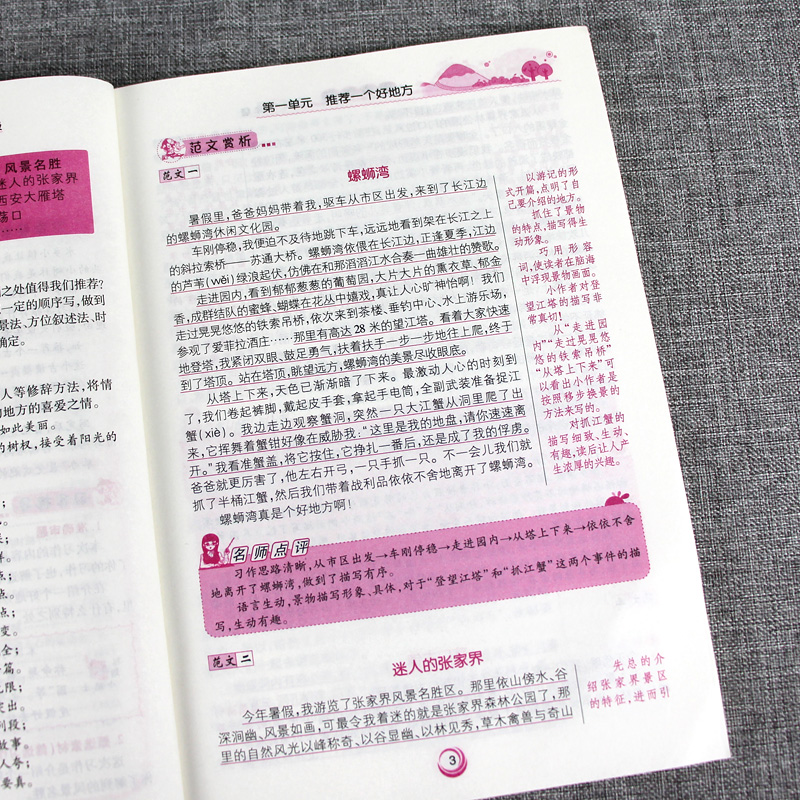 风景名胜
迷人的张家界
西安大雁塔
荡口
……
之处值得我们推荐？
一定的顺序写，做到
景法、方位叙述法、时
确定。
人等修辞方法，将情
地方的喜爱之情。
如此美丽。
的树杈，接受着阳光的
第一单元 推荐一个好地方
范文赏析
范文一
螺蛳湾
暑假里，爸爸妈妈带着我，驱车从市区出发，来到了长江边
的螺蛳湾休闲文化园。
车刚停稳，我便迫不及待地跳下车，远远地看到架在长江之上
的斜拉索桥——苏通大桥。螺蛳湾依偎在长江边，正逢夏季，江边
的芦苇（wěi）绿浪起伏，仿佛在和那滔滔江水合奏一曲雄壮的赞歌。
走进园内，看到郁郁葱葱的葡萄园，大片大片的薰衣草、郁金
香，成群结队的蜜蜂、蝴蝶在花丛中嬉戏，真让人心旷神怡啊！我们
走过晃晃悠悠的铁索吊桥，依次来到茶楼、垂钓中心、水上游乐场，
参观了爱菲拉酒庄……那里有高达28米的望江塔。看着大家快速
地登塔，我紧闭双眼、鼓足勇气，扶着扶手一步一步地往上爬，终于
到了塔顶。站在塔顶，眺望远方，螺蛳湾的美景尽收眼底。
从塔上下来，天色已渐渐暗了下来。最激动人心的时刻到
了，我们卷起裤脚，戴起皮手套，拿起手电筒，全副武装准备捉江
蟹（xiè）。我边走边观察蟹洞，突然一只大江蟹从洞里爬了出
来，它挥舞着蟹钳好像在威胁我：“这里是我的地盘，请你速速离
开。”我看准蟹盖，将它按住，它挣扎一番后，还是成了我的俘虏。
爸爸就更厉害了，他左右开弓，一只手抓一只。不一会儿我们就
抓了半桶江蟹，然后我们带着战利品依依不舍地离开了螺蛳湾。
螺蛳湾真是个好地方啊！
以游记的形
式开篇，点明了自
己要介绍的地方。
抓住了景物
的特点，描写得生
动形象。
巧用形容
词，使读者在脑海
中浮现景物画面。
小作者对登
望江塔的描写非
常真切！
从“走进园
内”“走过晃晃悠
悠的铁索吊桥”
“从塔上下来”可
以看出小作者是
按照移步换景的
方法来写的。
对抓江蟹的
描写细致、生动、
有趣，读后让人产
生浓厚的兴趣。
名师点评
习作思路清晰，从市区出发→车刚停稳→走进园内→从塔上下来→依依不舍
地离开了螺蛳湾，做到了描写有序。
语言生动，景物描写形象、具体，对于“登望江塔”和“抓江蟹”这两个事件的描
写，生动有趣。
范文二
迷人的张家界
今年暑假，我游览了张家界风景名胜区。那里依山傍水、谷
深涧幽、风景如画，可最令我着迷的就是张家界森林公园了，那
里的自然风光以峰称奇、以谷显幽、以林见秀，草木禽兽与奇山
先总的介
绍张家界景区
的特征，进而引
3